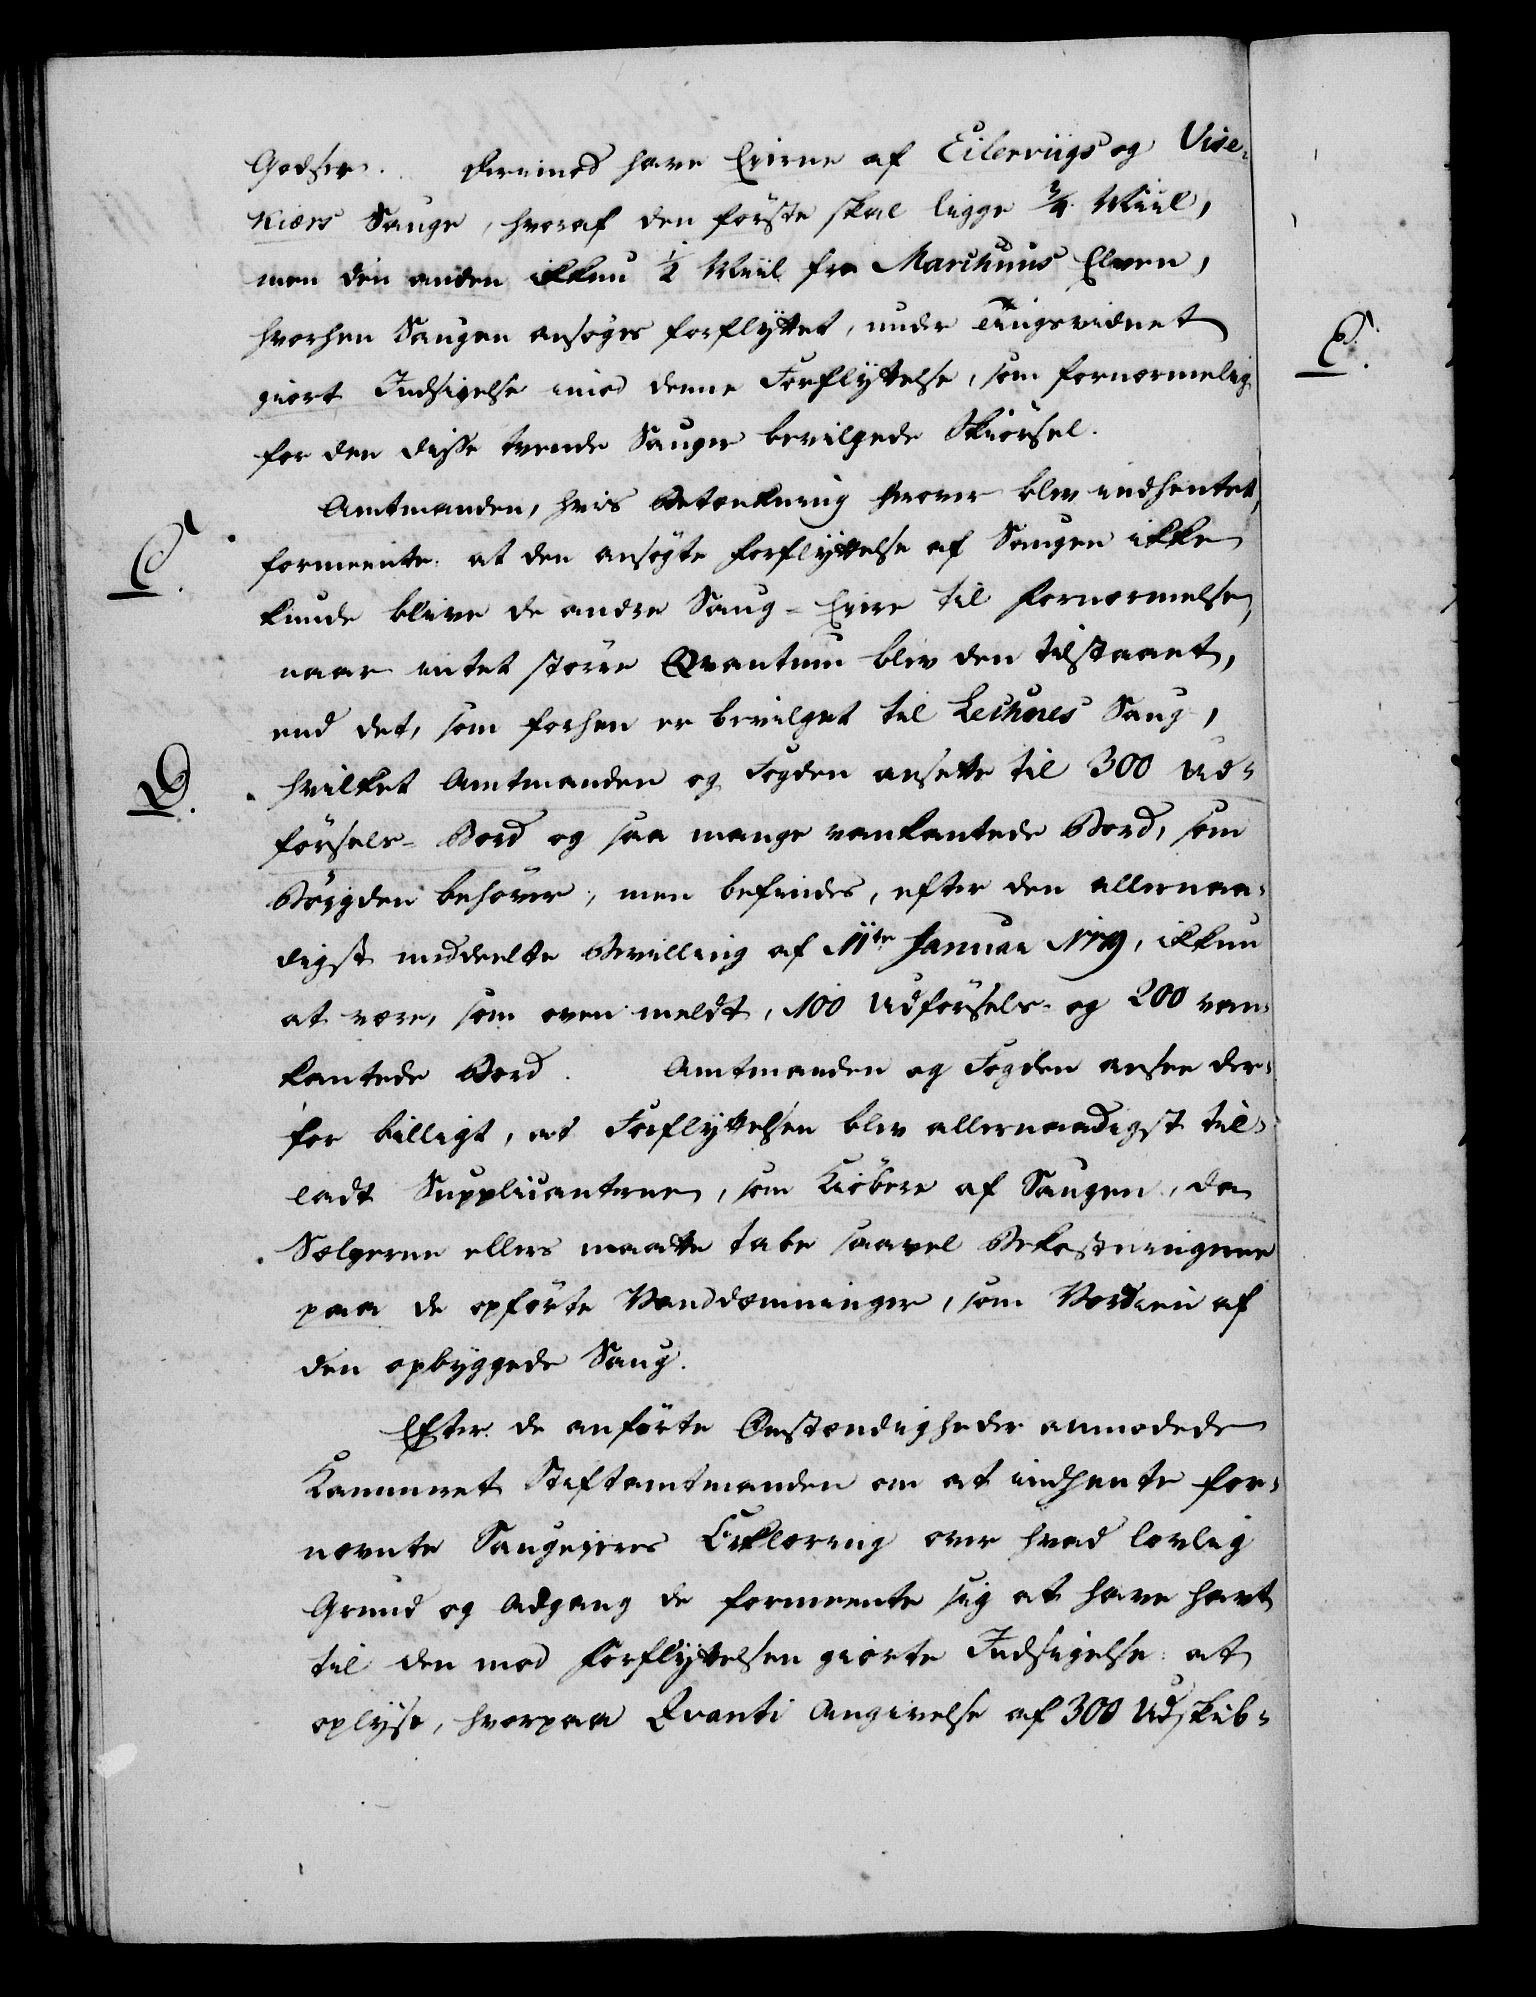 Godser. Derimod have Eierne af Eilerviigs og Vise-
kiærs Sauge, hvoraf den første skal ligge 3/4 Miil,
men den anden ikkun 1/2 Miil fra Marchuus Elven,
hvorhen Saugen ansøges forflyttet, under Tingsvidnet
giort Indsigelse imod denne Forflyttelse, som fornærmelig
for den disse tvende Sauger bevilgede Skiørsel.
C.
Amtmanden, hvis Betænkning herover blev indhentet,
formeente: at den ansøgte Forflyttelse af Saugen ikke
kunde blive de andre Saug-Eiere til Fornærmelse,
naar intet større Qvantum blev den tilstaaet,
end det, som forhen er bevilget til Leichnes Saug,
D.
hvilket Amtmanden og Fogden ansætte til 300 Ud-
førsels-Bord og saa mange vankantede Bord, som
Bøygden behøver; men befindes, efter den allernaa-
digst meddeelte Bevilling af 11te Januar 1779, ikkun
at være, som oven meldt, 100 Udførsels- og 200 van-
kantede Bord. Amtmanden og Fogden ansee der-
for billigt, at Forflyttelsen blev allernaadigst til-
ladt Supplicanterne, som Kiøbere af Saugen, da
Sælgerne ellers maatte tabe saavel Bekostningerne
paa de opførte Vanddæmninger, som Værdien af
den opbyggede Saug.
Efter de anførte Omstændigheder anmodede
Kammeret Stiftamtmanden om at indhente for-
nævnte Saugeieres Erklæring over hvad lovlig
Grund og Adgang de formeente sig at have havt
til den mod Forflyttelsen giorte Indsigelse: at
oplyse, hvorpaa Qvanti Angivelse af 300 Udskib-
E.